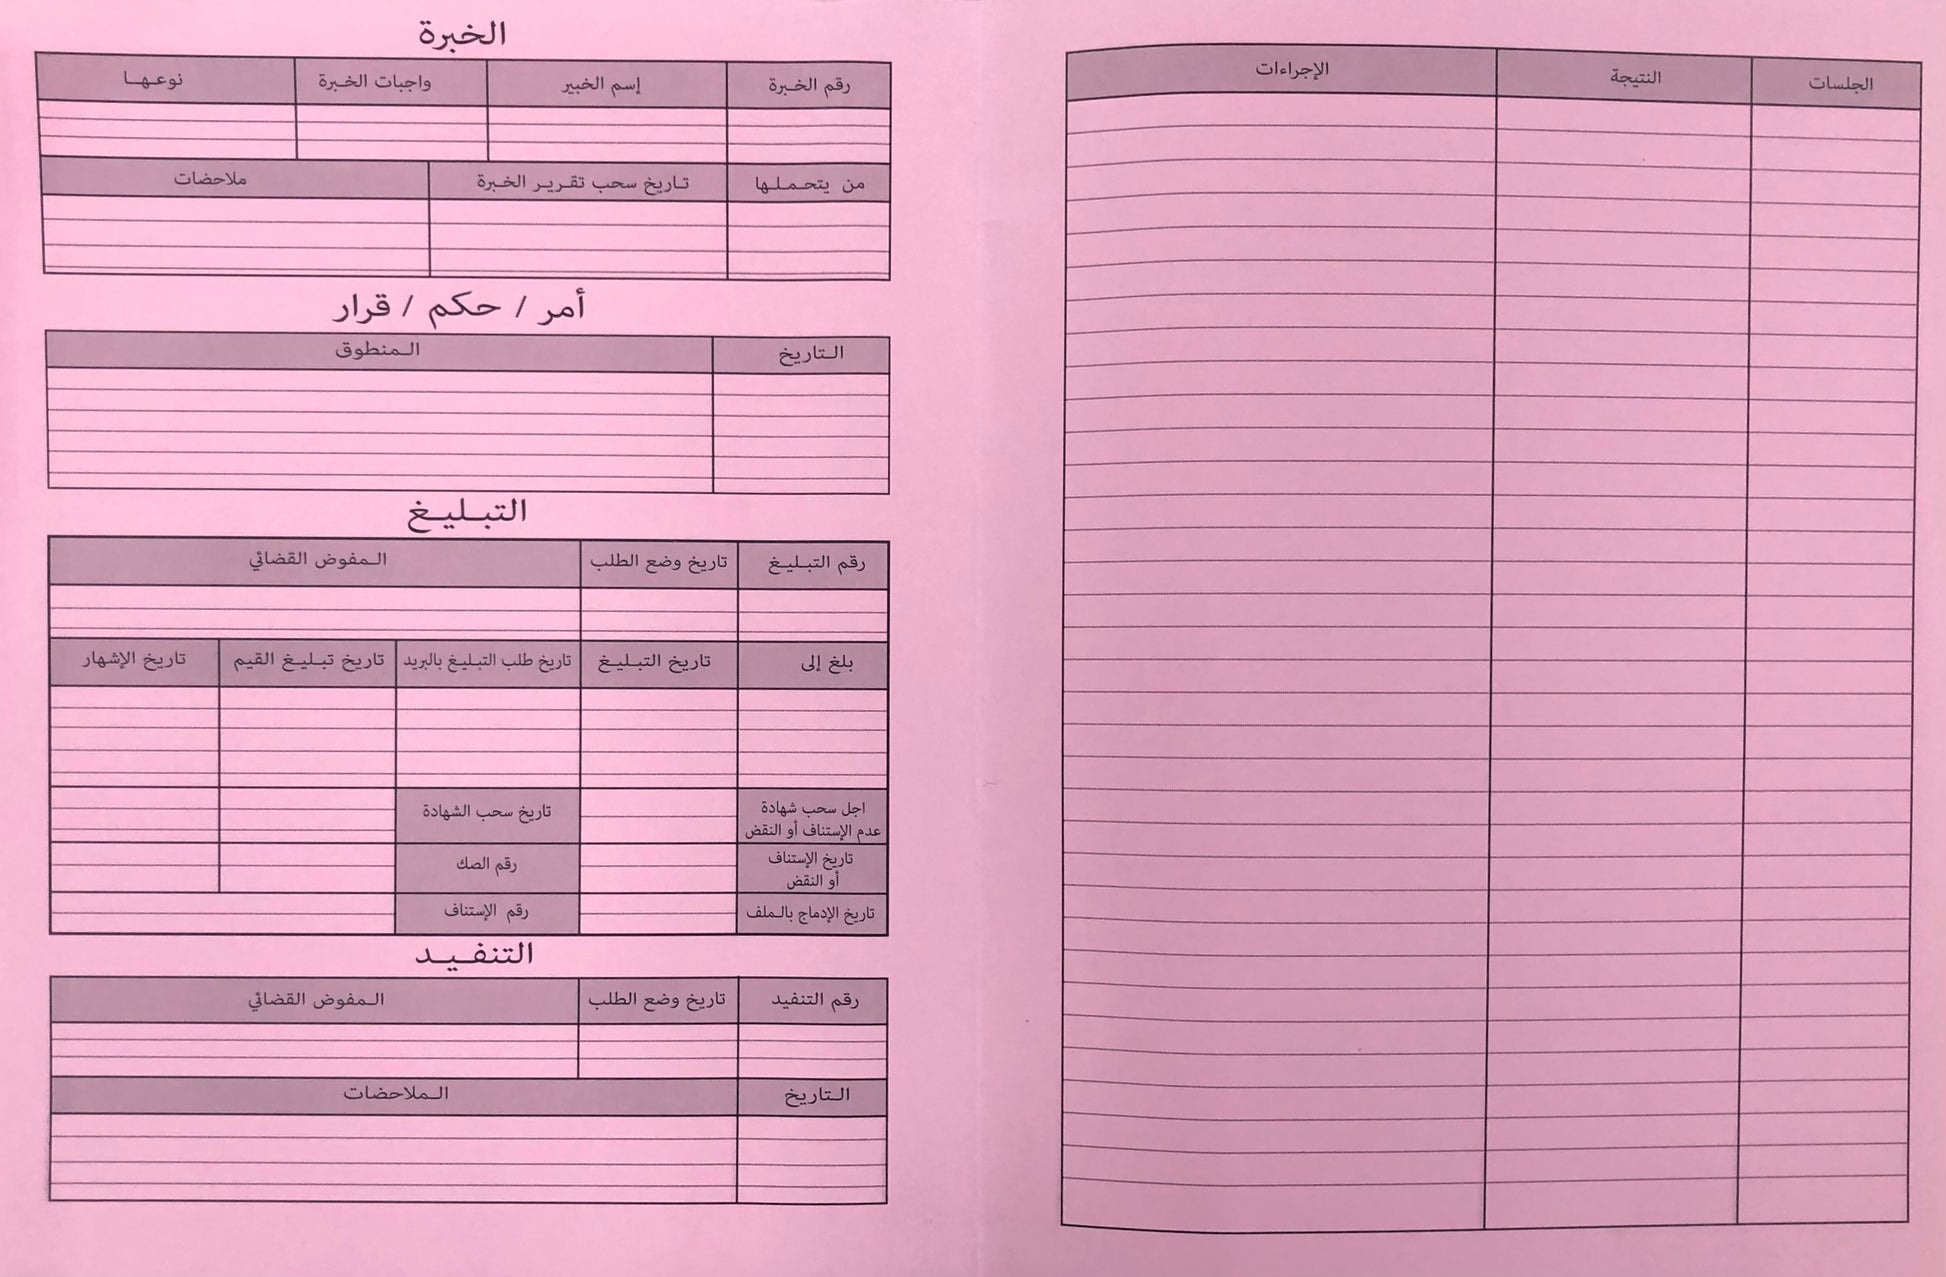 الجلسات النتيجة الإجراءات
الخبرة
رقم الخبرة إسم الخبير واجبات الخبرة نوعها
من يتحملها تاريخ سحب تقرير الخبرة ملاحضات
أمر / حكم / قرار
التاريخ المنطوق
التبليغ
رقم التبليغ تاريخ وضع الطلب المفوض القضائي
بلغ إلى تاريخ التبليغ تاريخ طلب التبليغ بالبريد تاريخ تبليغ القيم تاريخ الإشهار
اجل سحب شهادة
عدم الإستناف أو النقض
تاريخ سحب الشهادة
تاريخ الإستناف
أو النقض
رقم الصك
تاريخ الإدماج بالملف رقم الإستناف
التنفيد
رقم التنفيد تاريخ وضع الطلب المفوض القضائي
التاريخ الملاحضات